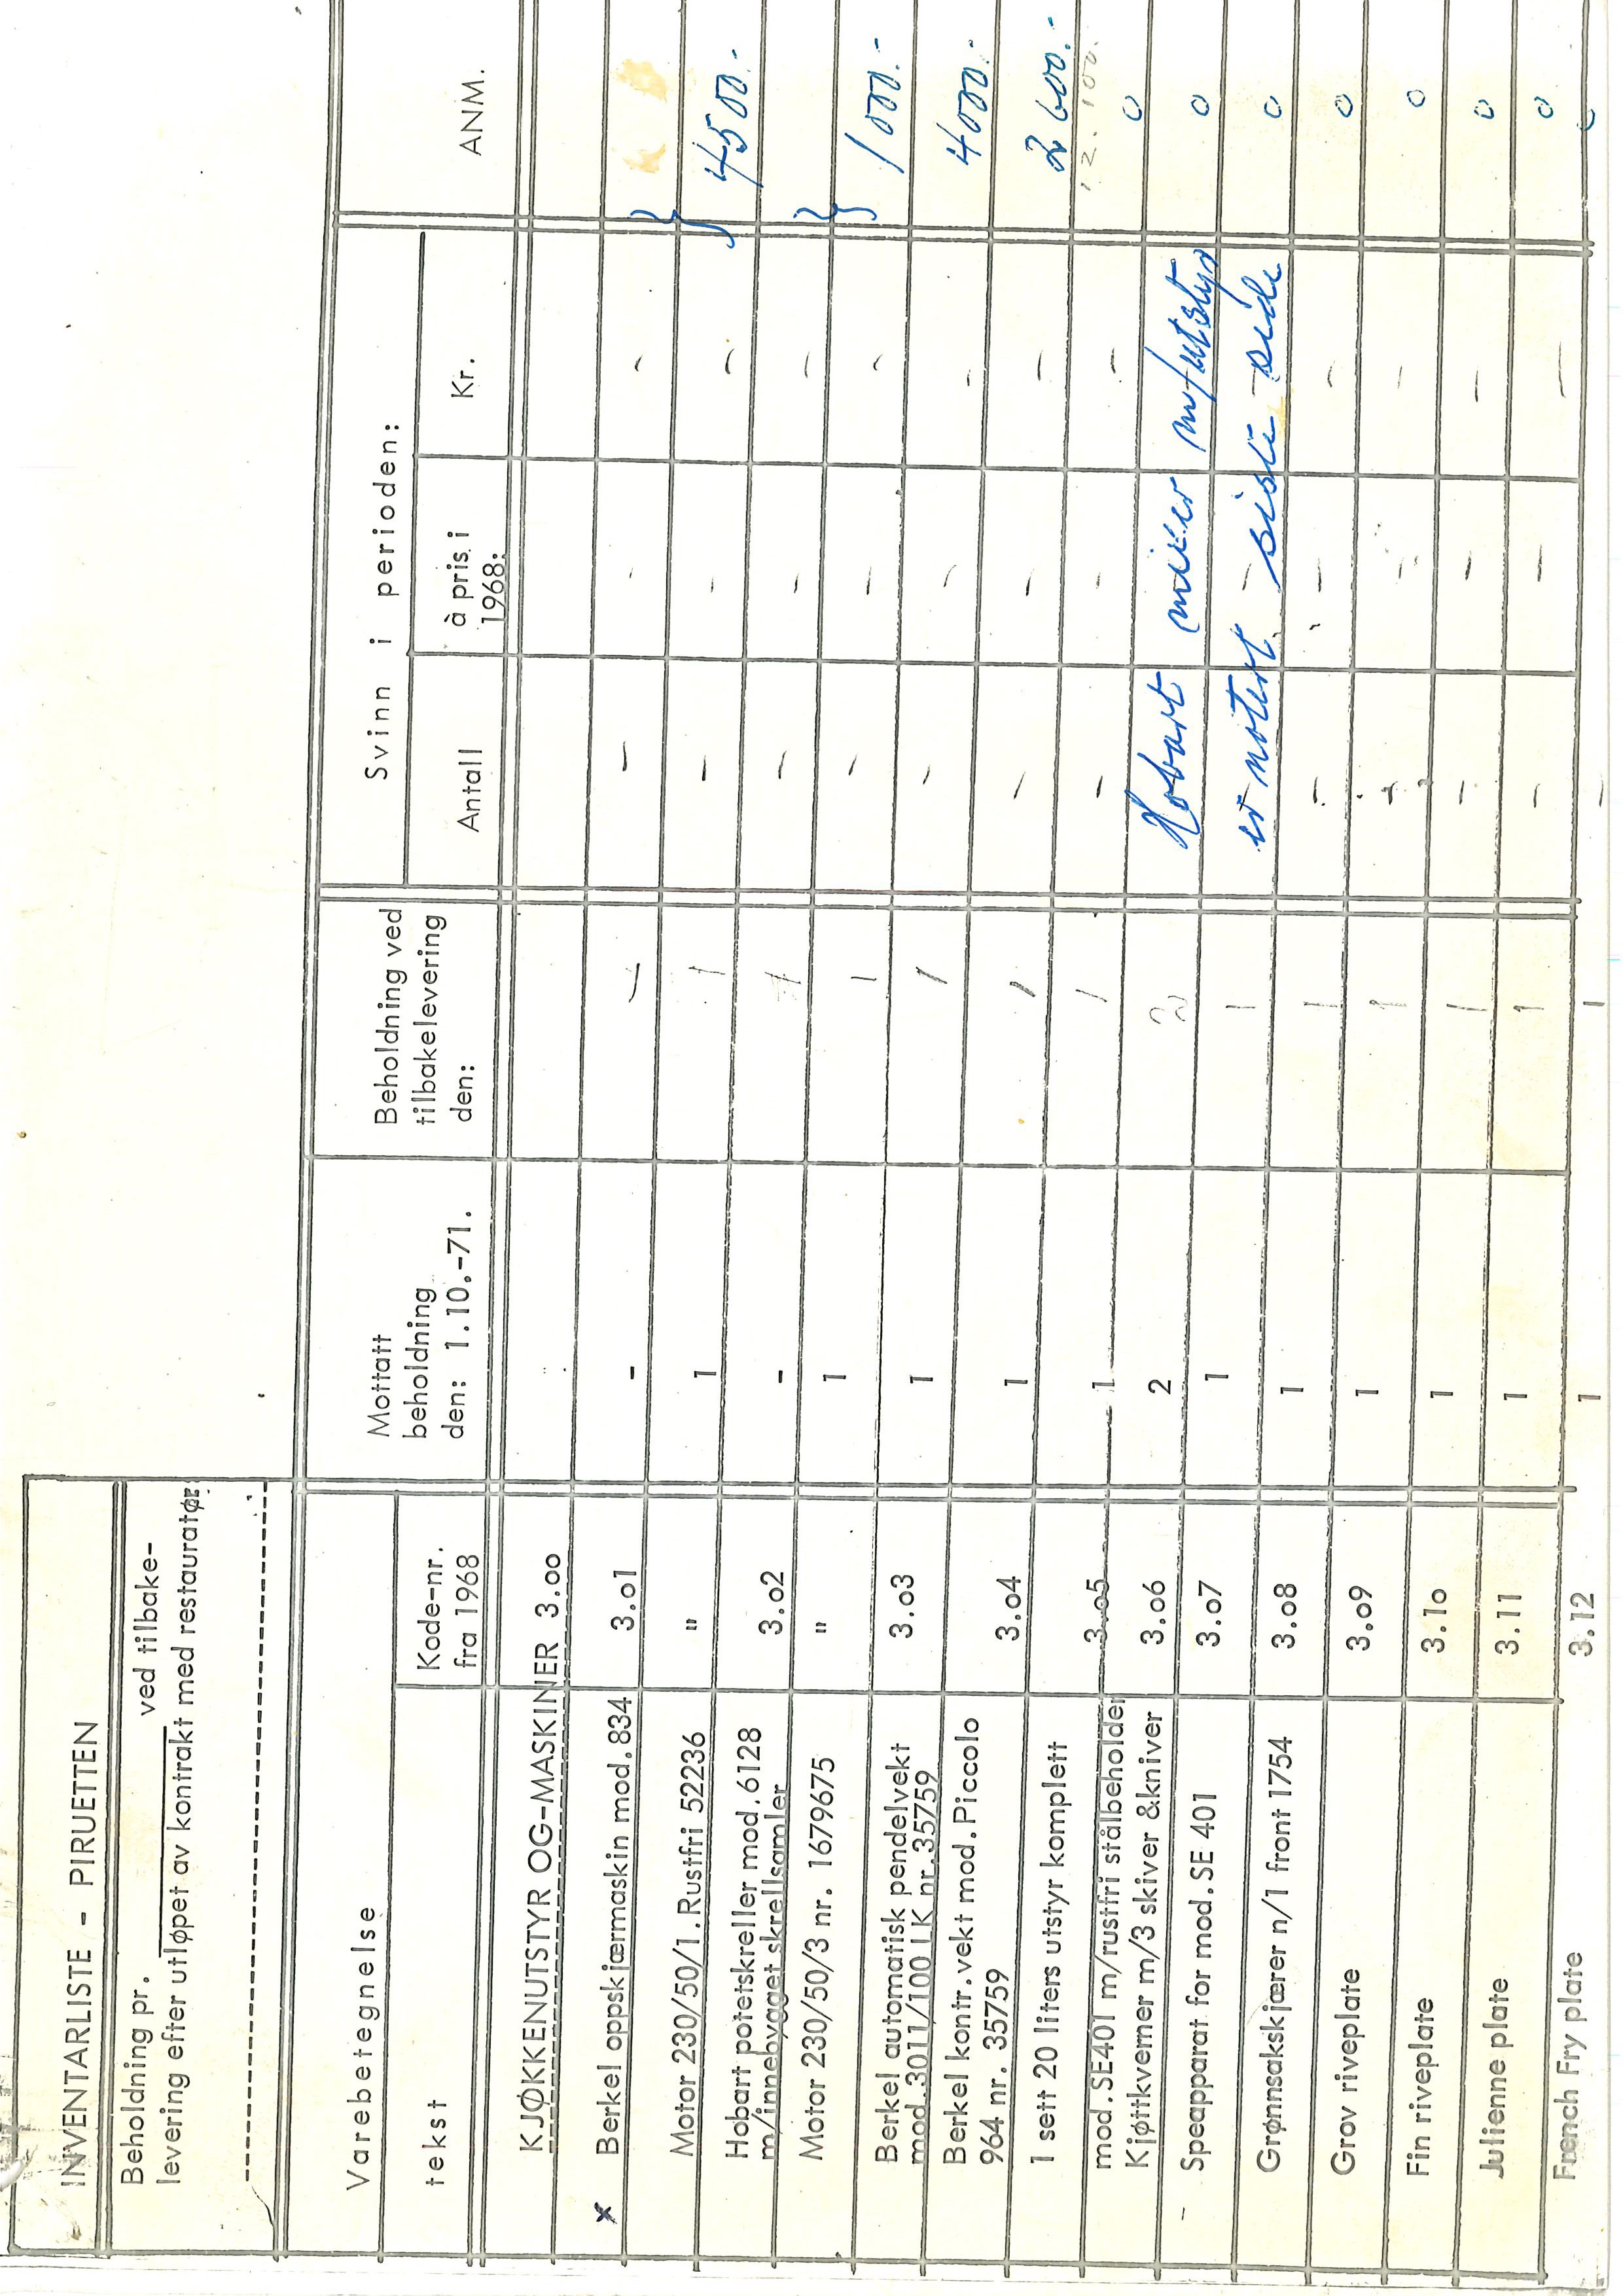 INVENTARLISTE - PIRUETTEN
Beholdning pr. ved tilbake-
levering efter utløpet av kontrakt med restauratør:
Varebetegnelse
tekst
Kode-nr.
fra 1968
Mottatt
beholdning
den: 1.10.-71.
Beholdning ved
tilbakelevering
den:
Svinn i perioden:
Antall
à pris i
1968:
Kr.
ANM.
KJØKKENUTSTYR OG-MASKINER 3.oo
x Berkel oppskjærmaskin mod.834 3.o1 - — - - -
Motor 230/50/1.Rustfri 52236 " 1 1 - - - } 4500.-
Hobart potetskreller mod.6128 3.o2 - - - -
m/innebygget skrellsamler
Motor 230/50/3 nr. 1679675 " 1 1 - - - } 1000.-
Berkel automatisk pendelvekt 3.o3 1 1 - - - 4000.-
mod.3011/100 LK nr.35759
Berkel kontr.vekt mod.Piccolo 3.o4 1 1 - - - 2600.-
964 nr. 35759
12.100.
1 sett 20 liters utstyr komplett 3.o5 1 1 - - - 0
mod.SE401 m/rustfri stålbeholder
Kjøttkverner m/3 skiver &kniver 3.o6 2 2 Hobart mixer m/utstyr 0
- Speapparat for mod.SE 401 3.o7 1 1 er notert siste side 0
Grønnsakskjærer n/1 front 1754 3.o8 1 1 - - - 0
Grov riveplate 3.o9 1 1 - - - 0
Fin riveplate 3.1o 1 1 - - - 0
Julienne plate 3.11 1 1 - - - 0
French Fry plate 3.12 1 1 -